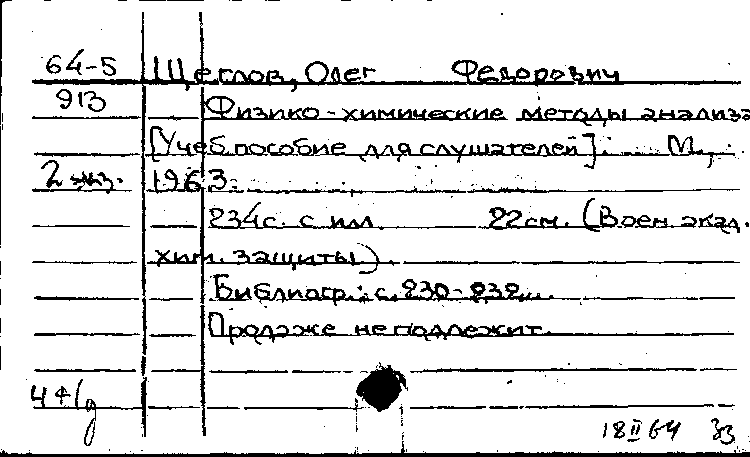 64-5 Щеглов, Олег Федорович
913 Физико-химические методы анализа
[Учеб. пособие для слушателей]. М.,
2 экз. 1963.
234 с. с илл. 22 см. (Воен. акад.
хим. защиты).
Библиогр.: с. 230-232.
Продаже не подлежит.
18 II 64